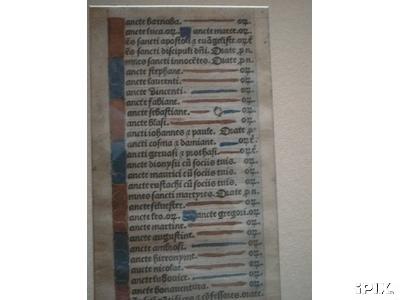 ancte barnaba. oꝝ.
ancte luca. oꝝ. ancte marce. oꝝ.
ẽs sancti apostoli ⁊ euãgelistẽ. oꝝ.
ẽs sancti discipuli dñi. Orate. ꝑ n.
mnes sancti innocẽtes. Orate. ꝑ n.
ancte stephane. oꝝ.
ancte laurenti. oꝝ.
ancte vincenti. oꝝ.
ancte fabiane. oꝝ.
ancte sebastiane. oꝝ.
ancte blasi. oꝝ.
ancti iohannes ⁊ paule. Orate. ꝑ.
ancti cosma ⁊ damiane. oꝝ.
ancti geruasi ⁊ prothasi. oꝝ.
ancte dionysii cũ sociis tuis. oꝝ.
ancte maurici cũ sociis tuis. oꝝ.
ancte eustachi cũ sociis tuis. oꝝ.
mnes sancti martyres. Orate. ꝑ n.
ancte siluestre. oꝝ.
ancte leo. oꝝ. ancte gregori. oꝝ.
ancte martine. oꝝ.
ancte augustine. oꝝ.
ancte ambrosi. oꝝ.
ancte hieronyme. oꝝ.
ancte nicolae. oꝝ.
ancte ludouice. oꝝ.
ancte bonauentura. oꝝ.
⁊ cõfessores. orate
iPIX